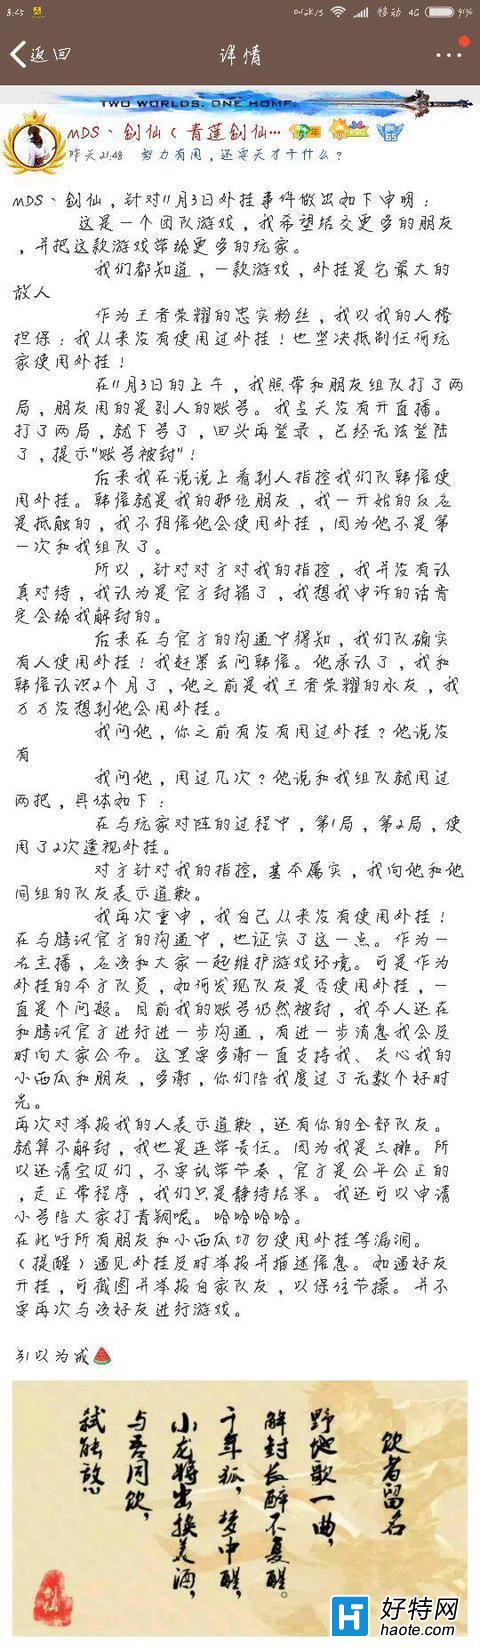 8:45
0.12K/S
移动 4G
91%
返回
详情
TWO WORLDS. ONE HOME.
MDS丶剑仙（青莲剑仙…
昨天21:48 努力有用，还要天才干什么？
MDS丶剑仙，针对11月3日外挂事件做出如下申明：
这是一个团队游戏，我希望结交更多的朋友
，并把这款游戏带给更多的玩家。
我们都知道，一款游戏，外挂是它最大的
敌人
作为王者荣耀的忠实粉丝，我以我的人格
担保：我从来没有使用过外挂！也坚决抵制任何玩
家使用外挂！
在11月3日的上午，我照常和朋友组队打了两
局，朋友用的是别人的账号。我当天没有开直播。
打了两局，就下号了，回头再登录，已经无法登陆
了，提示"账号被封"！
后来我在说说上看到人指控我们队韩信使
用外挂。韩信就是我的那位朋友，我一开始的反应
是抵触的，我不相信他会使用外挂，因为他不是第
一次和我组队了。
所以，针对对方对我的指控，我并没有认
真对待，我认为是官方封错了，我想我申诉的话肯
定会给我解封的。
后来在与官方的沟通中得知，我们队确实
有人使用外挂！我赶紧去问韩信。他承认了，我和
韩信认识2个月了，他之前是我王者荣耀的水友，我
万万没想到他会用外挂。
我问他，你之前有没有用过外挂？他说没
有
我问他，用过几次？他说和我组队就用过
两把，具体如下：
在与玩家对阵的过程中，第1局，第2局，使
用了2次透视外挂。
对方针对我的指控，基本属实，我向他和他
同组的队友表示道歉。
我再次重申，我自己从来没有使用外挂！
在与腾讯官方的沟通中，也证实了这一点。作为一
名主播，应该和大家一起维护游戏环境。可是作为
外挂的本方队员，如何发现队友是否使用外挂，一
直是个问题。目前我的账号仍然被封，我本人还在
和腾讯官方进行进一步沟通，有进一步消息我会及
时向大家公布。这里要多谢一直支持我、关心我的
小西瓜和朋友，多谢，你们陪我度过了无数个好时
光。
再次对举报我的人表示道歉，还有你的全部队友。
就算不解封，我也是连带责任。因为我是三排。所
以还请宝贝们，不要乱带节奏，官方是公平公正的
，走正常程序，我们只是静待结果。我还可以申请
小号陪大家打青铜呢。哈哈哈哈。
在此呼所有朋友和小西瓜切勿使用外挂等漏洞。
（提醒）遇见外挂及时举报并描述信息。如遇好友
开挂，可截图并举报自家队友，以保住节操。并不
要再次与该好友进行游戏。
引以为戒
饮者留名
野地歌一曲，
解封长醉不复醒。
千年狐，梦中醒，
小龙将出换美酒，
与吾同饮，
弑能放心
剑仙
好特网
haote.com